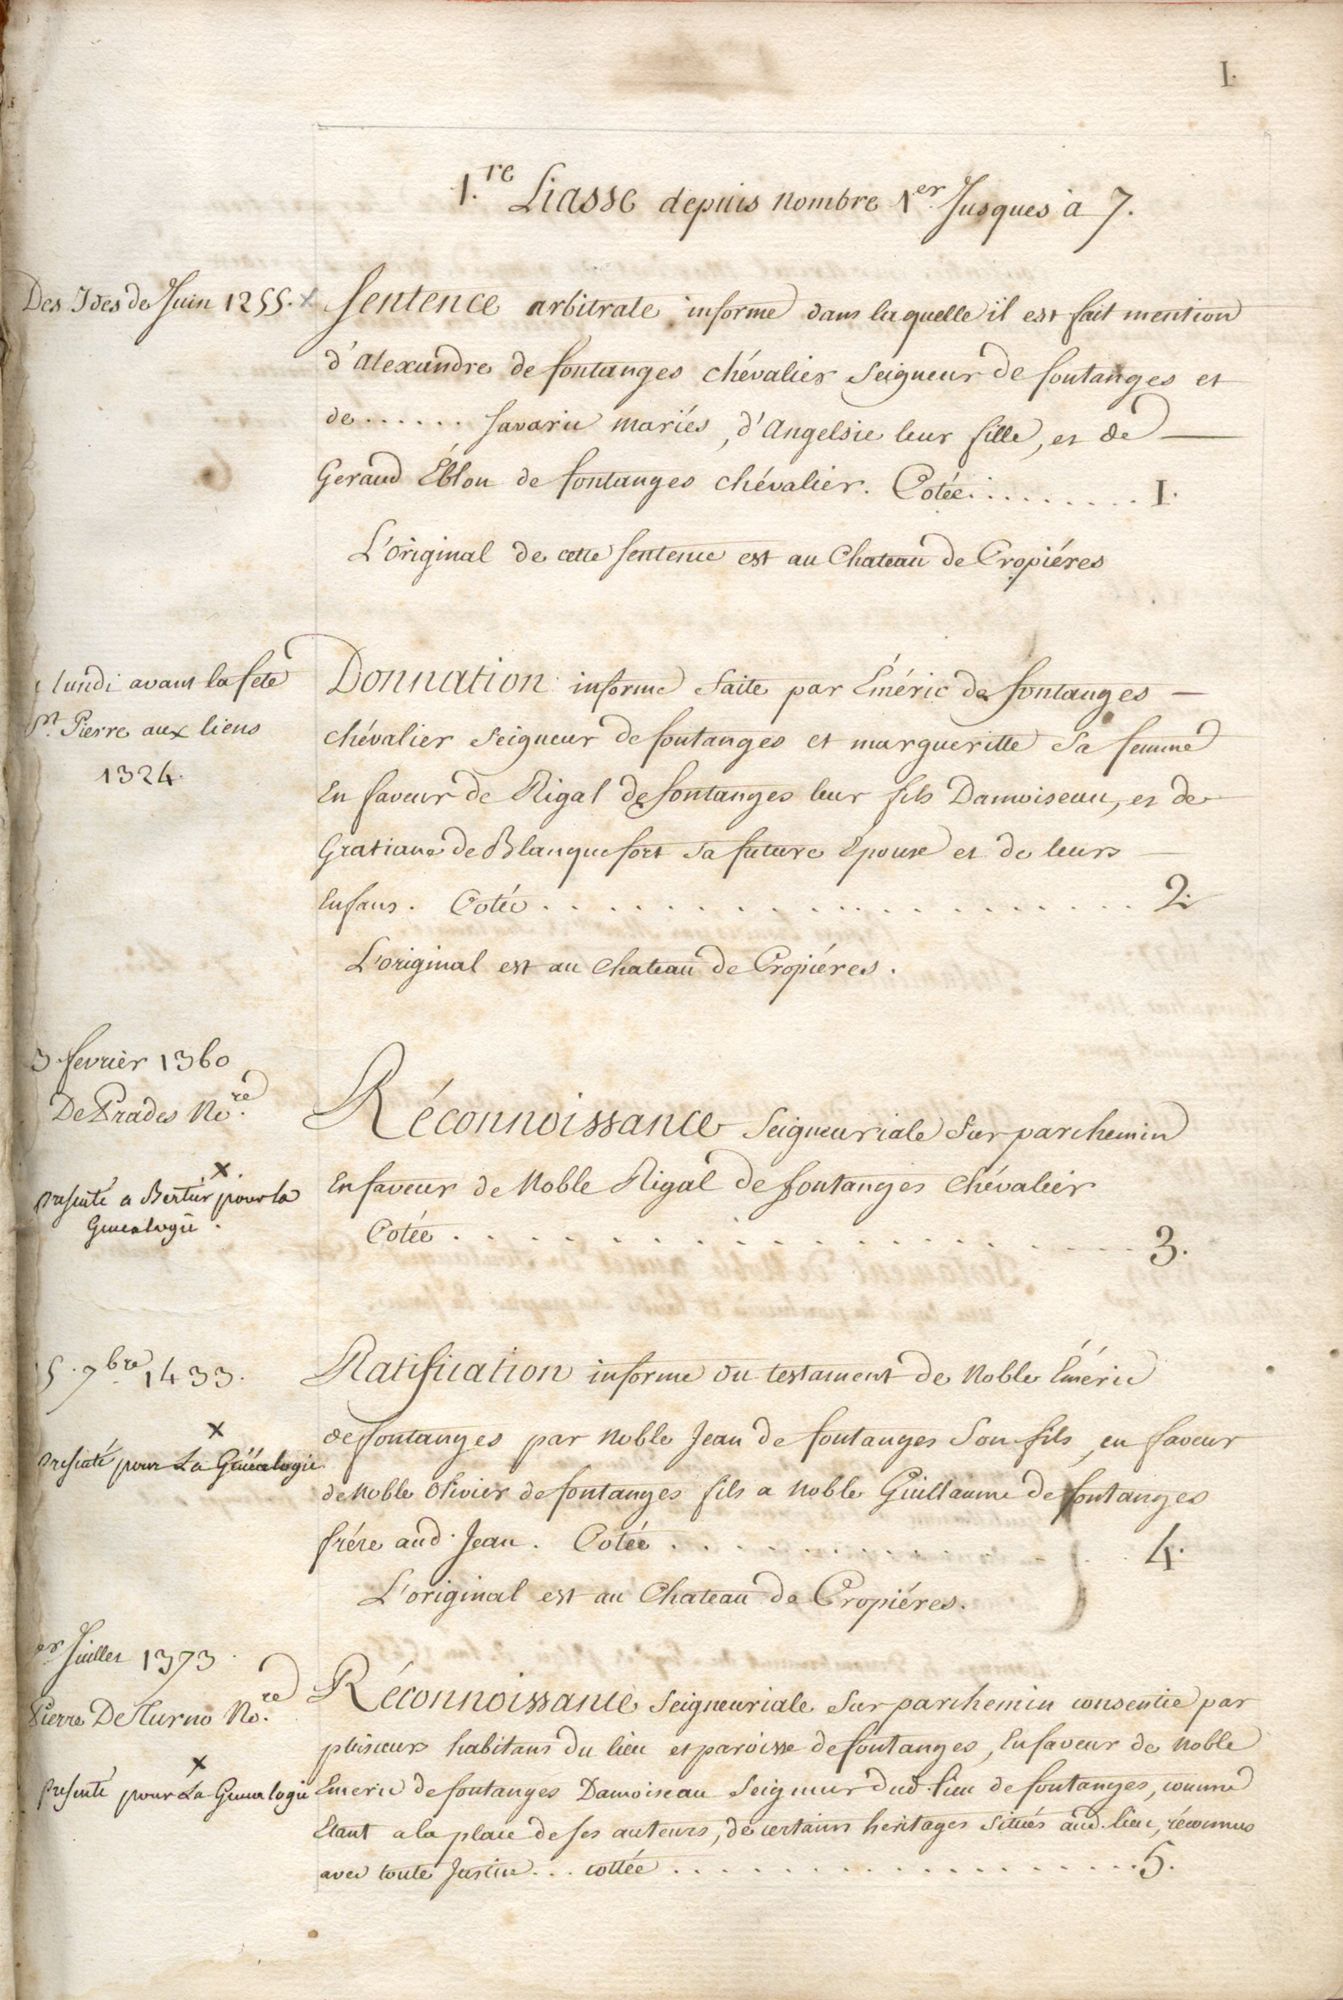 I.
1.re Liasse depuis nombre 1er Jusques à 7.
Des Ides de Juin 1255. x
Sentence arbitrale informe dans laquelle il est fait mention
d'Alexandre de fontanges chévalier Seigneur de fontanges et
de ...... Savarie mariés, d'Angelsie leur fille, et de —
Geraud Éblon de fontanges chévalier. Cotée ......... I.
L'original de cette Sentence est au Chateau de Cropiéres
lundi avant la fete
St. Pierre aux liens
1324.
Donnation informe faite par Éméric de fontanges —
chévalier Seigneur de fontanges et margueritte Sa femme
En faveur de Rigal de fontanges leur fils Damoiseau, et de
Gratiane de Blanquefort Sa future Epouse et de leurs —
Enfans. Cotée .................... 2.
L'original est au Chateau de Cropiéres.
3. fevrier 1360
De Prades No.re
x.
presenté a Bertin pour la
Genealogie.
Réconnoissance Seigneuriale Sur parchemin
En faveur de Noble Rigal de fontanges Chévalier
Cotée .................... 3.
5. 7bre 1433.
x
presenté pour La Genealogie
Ratification informe du testament de Noble Éméric
de fontanges par Noble Jean de fontanges Son fils, en faveur
de Noble Olivier de fontanges fils a Noble Guillaume de fontanges
frére aud. Jean. Cotée .............. 4.
L'original est au Chateau de Cropiéres.
er Juillet 1373.
Pierre De Turno No.re
x
presenté pour La Genealogie
Réconnoissance Seigneuriale Sur parchemin consentie par
plusieurs habitans du lieu et paroisse de fontanges, En faveur de Noble
Emeric de fontanges Damoiseau Seigneur dud. lieu de fontanges, comme
Etant a la place de ses auteurs, de certains heritages Situés aud. lieu, réconnus
avec toute Justice ... cottée .................. 5.